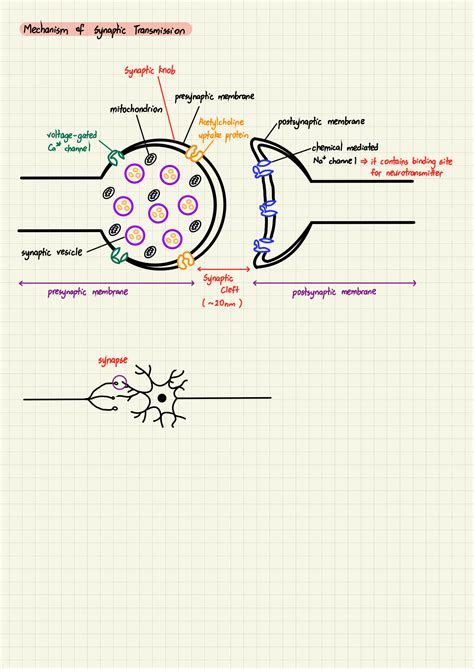 Mechanism of Synaptic Transmission
Synaptic knob
presynaptic membrane
mitochondrion
Acetylcholine
uptake protein
postsynaptic membrane
voltage-gated
Ca²⁺ channel
chemical mediated
Na⁺ channel ⇒ it contains binding site
for neurotransmitter
synaptic vesicle
Synaptic
Cleft
(~20nm)
presynaptic membrane
postsynaptic membrane
synapse